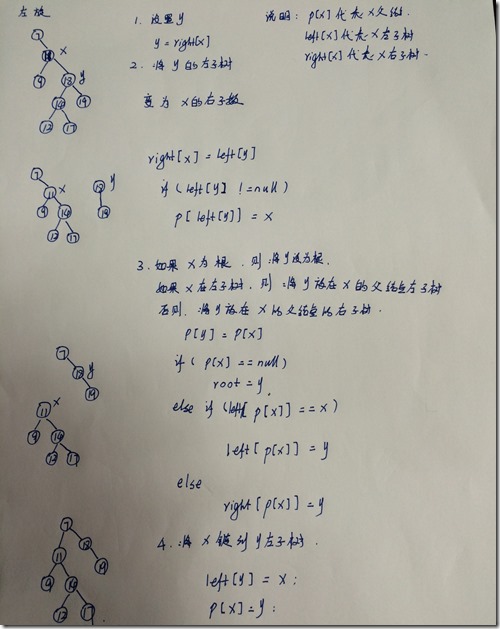 左旋
1. 设置y
y = right[x]
说明: p[x] 代表 x 父结.
left[x] 代表 x 左子树
right[x] 代表 x 右子树.
2. 将 y 的左子树
变为 x 的右子树
right[x] = left[y]
if (left[y] != null)
p[left[y]] = x
3. 如果 x 为根, 则: 将y设为根.
如果 x 在左子树, 则: 将 y 放在 x 的父结点左子树
否则, 将 y 放在 x 的父结点的右子树.
p[y] = p[x]
if ( p[x] == null)
root = y.
else if (left[p[x]] == x)
left[p[x]] = y
else
right[p[x]] = y
4. 将 x 链到 y 左子树.
left[y] = x;
p[x] = y;
7
x
18
y
14
19
12
17
7
11
x
9
14
12
17
18
y
19
7
18
y
19
11
x
9
14
12
17
7
11
18
9
14
19
12
17